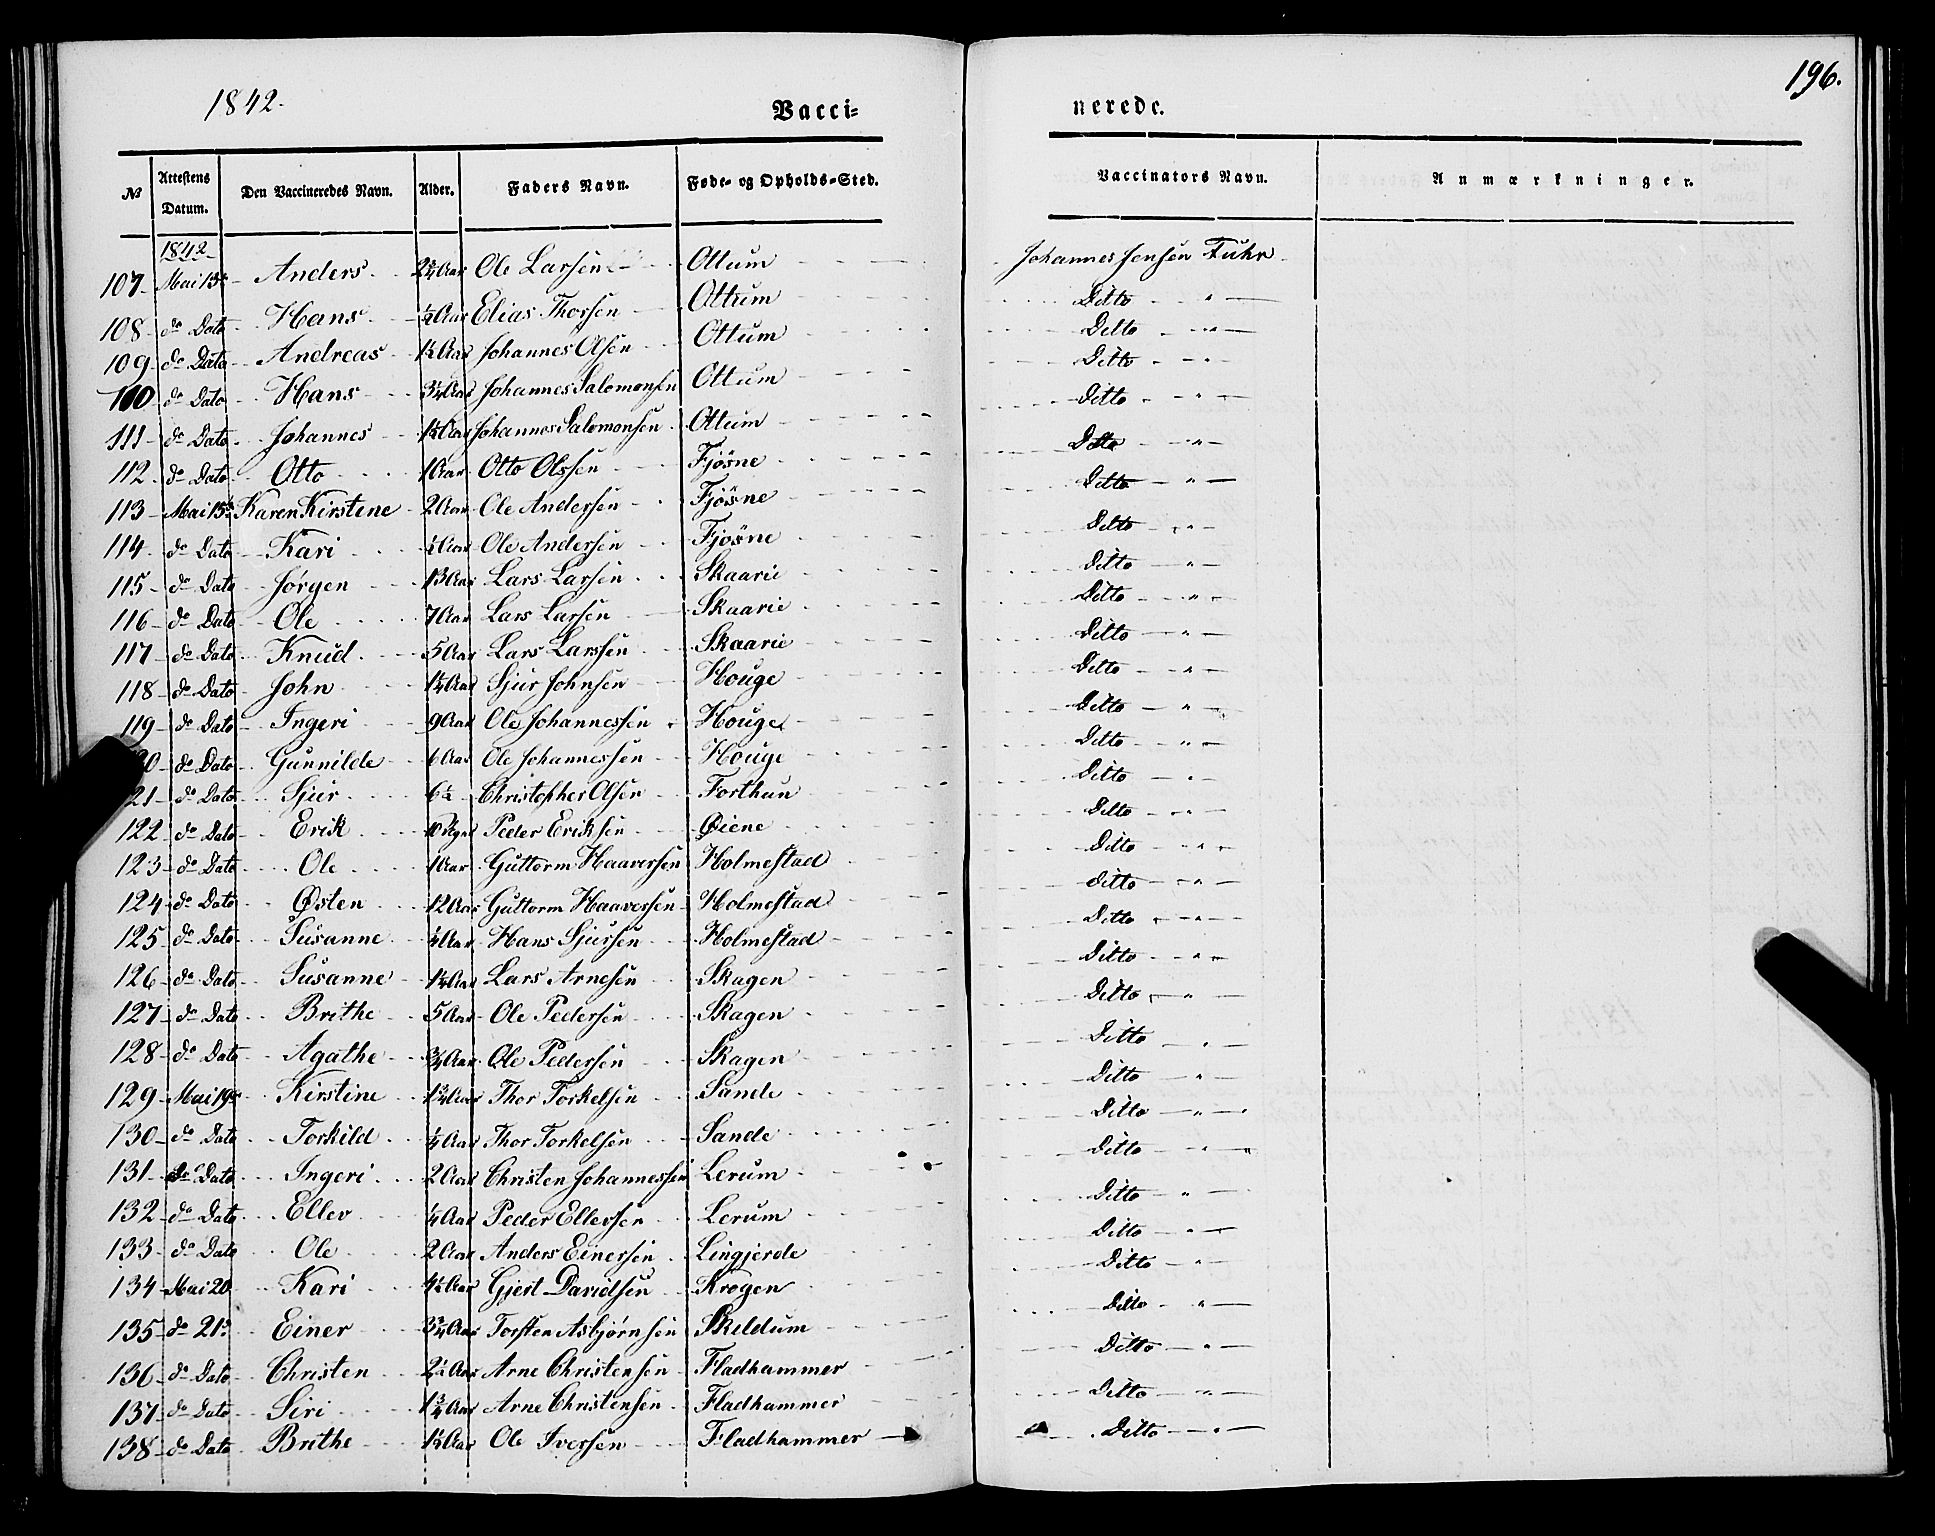 1842.
Vacci=
nerede.
196.
No Attestens Datum. Den Vaccineredes Navn. Alder. Faders Navn. Føde- og Opholds-Sted. Vaccinators Navn. Anmærkninger.
1842
107 Mai 13de Anders 2¾ Aar Ole Larsen Ottum Johannes Jensen Fuhr
108 do Dato Hans ½ Aar Elias Thorsen Ottum Ditto "
109 do Dato Andreas 1½ Aar Johannes Olsen Ottum Ditto "
110 do Dato Hans 3¼ Aar Johannes Salomonsen Ottum Ditto "
111 do Dato Johannes 1½ Aar Johannes Salomonsen Ottum Ditto "
112 do Dato Otto 1 Aar Otto Olssen Fjøsne Ditto "
113 Mai 15de Karen Kirstene 2 Aar Ole Andersen Fjøsne Ditto "
114 do Dato Kari Aar Ole Andersen Fjøsne Ditto "
115 do Dato Jørgen 13 Aar Lars Larsen Skaarie Ditto "
116 do Dato Ole 7 Aar Lars Larsen Skaarie Ditto "
117 do Dato Knud 5 Aar Lars Larssen Skaarie Ditto "
118 do Dato John 1¼ Aar Sjur Johnsen Houge Ditto "
119 do Dato Ingeri 9 Aar Ole Johannessen Houge Ditto "
20 do Dato Gunnilde 6 Aar Ole Johannessen Houge Ditto "
21 do Dato Sjur 6½ Christopher Olsen Forthun Ditto "
122 do Dato Erik 10 Peder Eriksen Øiene Ditto "
123 do Dato Ole 1 Aar Guttorm Haaversen Holmestad Ditto "
124 do Dato Østen 12 Aar Guttorm Haaversen Holmestad Ditto "
125 do Dato Susanne ¼ Aar Hans Sjursen Holmestad Ditto "
126 do Dato Susanne 1¼ Aar Lars Arnesen Skagen Ditto "
127 do Dato Brithe 5 Aar Ole Pedersen Skagen Ditto "
128 do Dato Agathe ¾ Aar Ole Pedersen Skagen Ditto "
129 Mai 19de Kirstine 1¾ Aar Thor Torkelsen Sande Ditto "
130 do Dato Torkild ¼ Aar Thor Torkelsen Sande Ditto "
131 do Dato Ingeri 2 Aar Christen Johannessen Lerum Ditto "
132 do Dato Ellev ¼ Aar Peder Ellevsen Lerum Ditto "
133 do Dato Ole 2 Aar Anders Einersen Lingjerde Ditto "
134 Mai 20 Kari 4½ Aar Gjert Davidsen Krogen Ditto "
135 do 21de Einer 3¾ Aar Torsten Asbjørnsen Skeldum Ditto "
136 do Dato Christen 2½ Aar Arne Christensen Fladhammer Ditto "
137 do Dato Siri 1¾ Aar Arne Christensen Fladhammer Ditto "
138 do Dato Brithe 1½ Aar Ole Iversen Fladhammer Ditto "